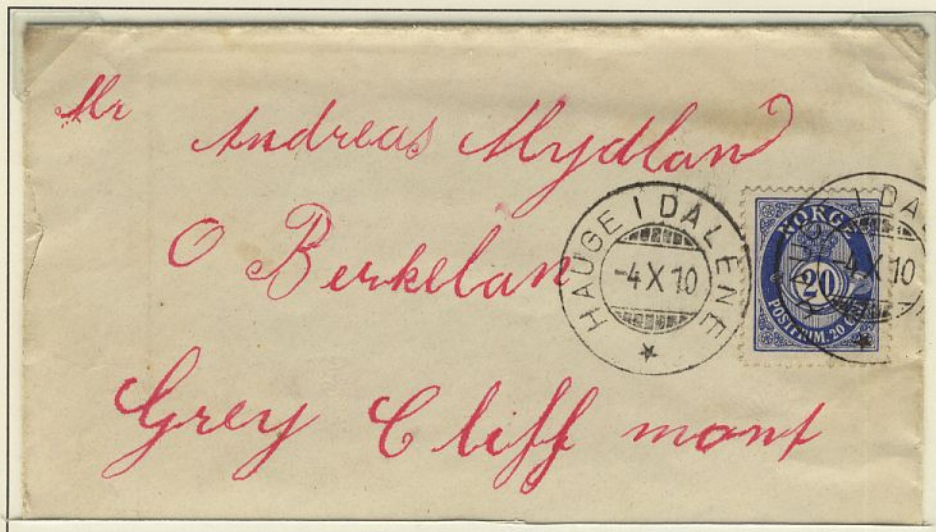 Mr
Andreas Mydland
O Berkelan
Grey Cliff mont
HAUGE I DALENE
-4 X 10
NORGE
20
POSTFRIM. 20
I DA
-4 X 10